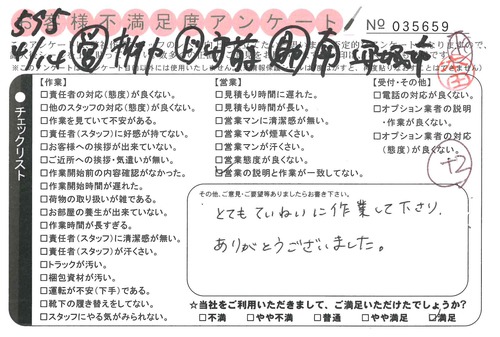 595
お客様不満足度アンケート
No 035659
チェックリスト
【作業】
□責任者の対応(態度)が良くない。
□他のスタッフの対応(態度)が良くない。
□作業を見ていて不安がある。
□責任者(スタッフ)に好感が持てない。
□お客様への挨拶が出来ていない。
□ご近所への挨拶・気遣いが無い。
□作業開始前の内容確認がなかった。
□作業開始時間が遅れた。
□荷物の取り扱いが雑である。
□お部屋の養生が出来ていない。
□作業時間が長すぎる。
□責任者(スタッフ)に清潔感が無い。
□責任者(スタッフ)が汗くさい。
□トラックが汚い。
□梱包資材が汚い。
□運転が不安(下手)である。
□靴下の履き替えをしてない。
□スタッフにやる気がみられない。
【営業】
□見積もり時間に遅れた。
□見積もり時間が長い。
□営業マンに清潔感が無い。
□営業マンが煙草くさい。
□営業マンが汗くさい。
□営業態度が良くない。
□営業の説明と作業が一致してない。
【受付・その他】
□電話の対応が良くない。
□オプション業者の説明
・作業が良くない。
□オプション業者の対応
(態度)が良くない。
その他、ご意見・ご要望等ありましたらお書き下さい。
とてもていねいに作業して下さり、
ありがとうございました。
☆当社をご利用いただきまして、ご満足いただけたでしょうか?
□不満 □やや不満 □普通 □やや満足 ☑満足